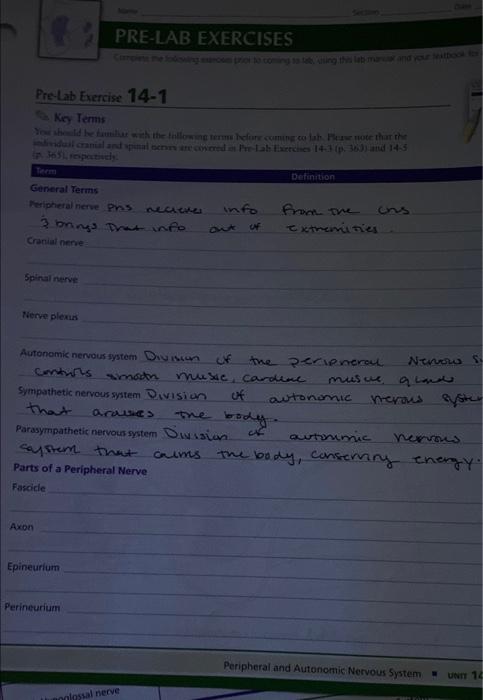 Name
Section
Date
PRE-LAB EXERCISES
Complete the following exercises prior to coming to lab, using this lab manual and your textbook for
Pre-Lab Exercise 14-1
Key Terms
You should be familiar with the following terms before coming to lab. Please note that the
individual cranial and spinal nerves are covered in Pre-Lab Exercises 14-3 (p. 363) and 14-5
(p. 365), respectively.
Term Definition
General Terms
Peripheral nerve PNS info from the CNS
brings that info out of extremities.
Cranial nerve
Spinal nerve
Nerve plexus
Autonomic nervous system Division of the Nervous S
controls smooth musle, musle, glands
Sympathetic nervous system Division of autonomic nervous syste
that arauses the body.
Parasympathetic nervous system Division of autonomic nervous
system that calms the body, conserving energy.
Parts of a Peripheral Nerve
Fascicle
Axon
Epineurium
Perineurium
Peripheral and Autonomic Nervous System ■ UNIT 14
nerve